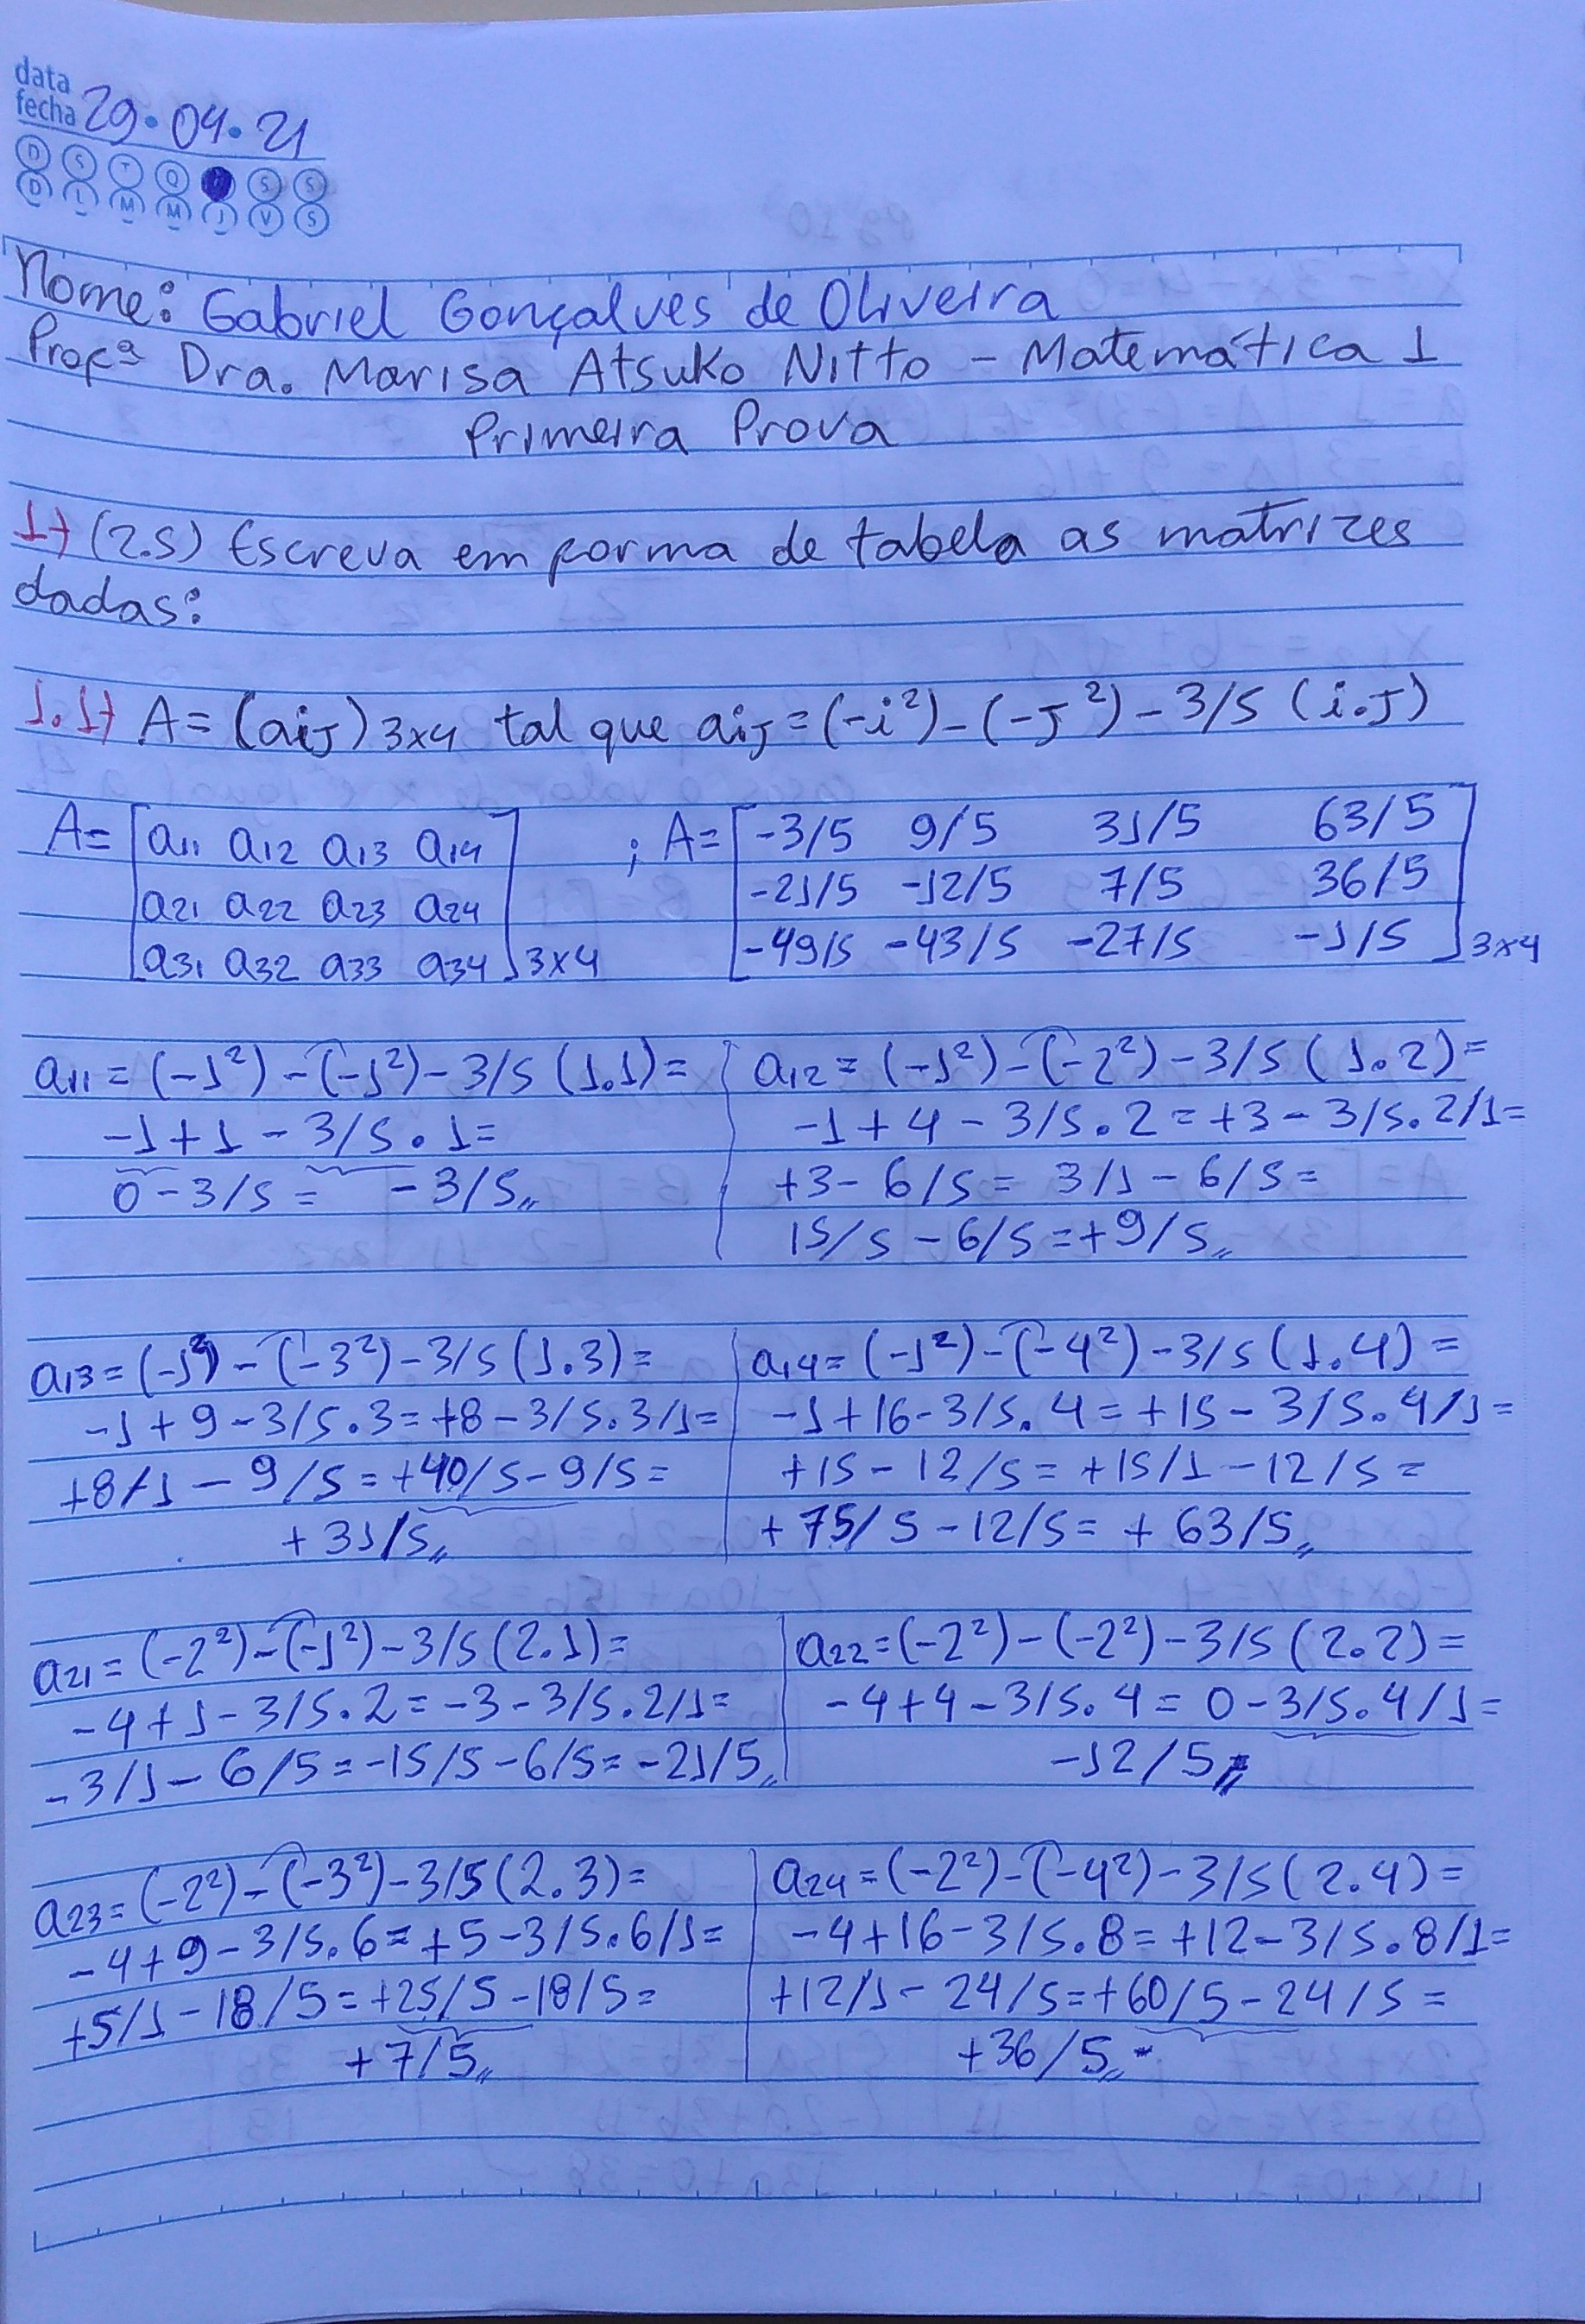 data
fecha 29.04.21
D S T Q S S
D L M M J V S
Nome: Gabriel Gonçalves de Oliveira
Profª Dra. Marisa Atsuko Nitto - Matemática 1
Primeira Prova
1) (2.5) Escreva em forma de tabela as matrizes
dadas:
1.1) A = (aij)3x4 tal que aij = (-i²) - (-j²) - 3/5 (i.j)
A = [a11 a12 a13 a14 ; A = [-3/5 9/5 31/5 63/5
a21 a22 a23 a24 -21/5 -12/5 7/5 36/5
a31 a32 a33 a34]3x4 -49/5 -43/5 -27/5 -1/5]3x4
a11 = (-1²) - (-1²) - 3/5 (1.1) =
-1 + 1 - 3/5 . 1 =
0 - 3/5 = -3/5,,
a12 = (-1²) - (-2²) - 3/5 (1.2) =
-1 + 4 - 3/5 . 2 = +3 - 3/5 . 2/1 =
+3 - 6/5 = 3/1 - 6/5 =
15/5 - 6/5 = +9/5,,
a13 = (-1²) - (-3²) - 3/5 (1.3) =
-1 + 9 - 3/5 . 3 = +8 - 3/5 . 3/1 =
+8/1 - 9/5 = +40/5 - 9/5 =
+31/5,,
a14 = (-1²) - (-4²) - 3/5 (1.4) =
-1 + 16 - 3/5 . 4 = +15 - 3/5 . 4/1 =
+15 - 12/5 = +15/1 - 12/5 =
+75/5 - 12/5 = +63/5,,
a21 = (-2²) - (-1²) - 3/5 (2.1) =
-4 + 1 - 3/5 . 2 = -3 - 3/5 . 2/1 =
-3/1 - 6/5 = -15/5 - 6/5 = -21/5,,
a22 = (-2²) - (-2²) - 3/5 (2.2) =
-4 + 4 - 3/5 . 4 = 0 - 3/5 . 4/1 =
-12/5,,
a23 = (-2²) - (-3²) - 3/5 (2.3) =
-4 + 9 - 3/5 . 6 = +5 - 3/5 . 6/1 =
+5/1 - 18/5 = +25/5 - 18/5 =
+7/5,,
a24 = (-2²) - (-4²) - 3/5 (2.4) =
-4 + 16 - 3/5 . 8 = +12 - 3/5 . 8/1 =
+12/1 - 24/5 = +60/5 - 24/5 =
+36/5,,